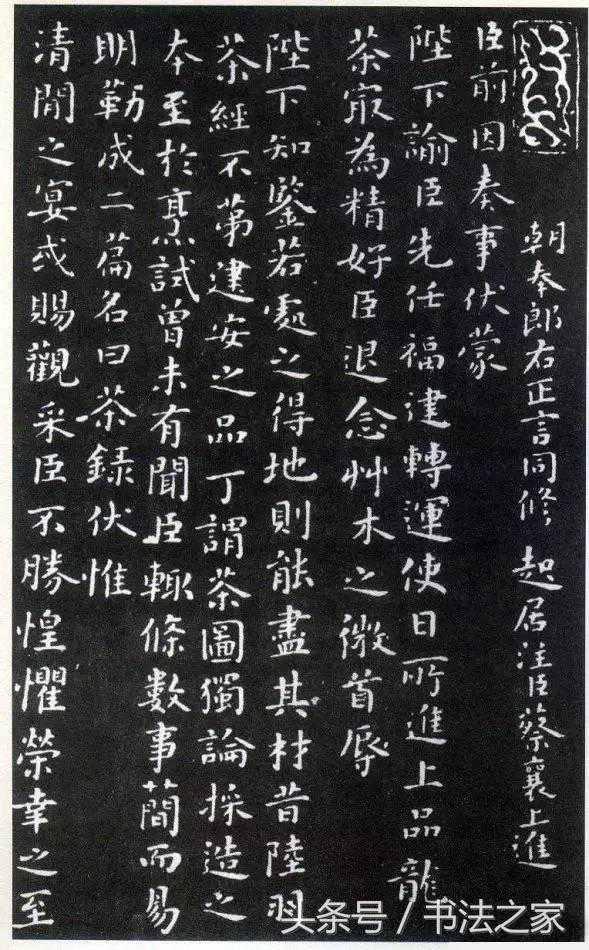 朝奉郎右正言同修起居注臣蔡襄上進
臣前因奏事伏蒙
陛下諭臣先任福建轉運使日所進上品龍
茶㝡為精好臣退念艸木之微首辱
陛下知鑒若處之得地則能盡其材昔陸羽
茶經不第建安之品丁謂茶圖獨論採造之
本至於烹試曾未有聞臣輒條數事簡而易
明勒成二篇名曰茶錄伏惟
清閒之宴或賜觀采臣不勝惶懼榮幸之至
头条号／书法之家